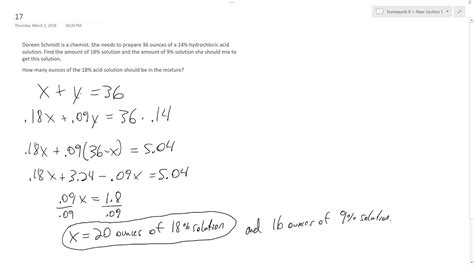 homework 8 > New Section 1
17
Thursday, March 1, 2018 10:20 PM
Doreen Schmidt is a chemist. She needs to prepare 36 ounces of a 14% hydrochloric acid
solution. Find the amount of 18% solution and the amount of 9% solution she should mix to
get this solution.
How many ounces of the 18% acid solution should be in the mixture?
x + y = 36
.18x + .09y = 36 · .14
.18x + .09(36-x) = 5.04
.18x + 3.24 - .09x = 5.04
.09x = 1.8
.09 .09
x = 20 ounces of 18% solution and 16 ounces of 9% solution.